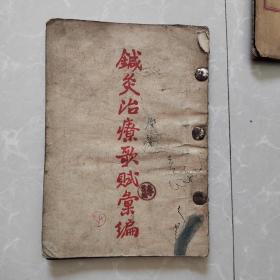 鍼灸治療歌賦彙編